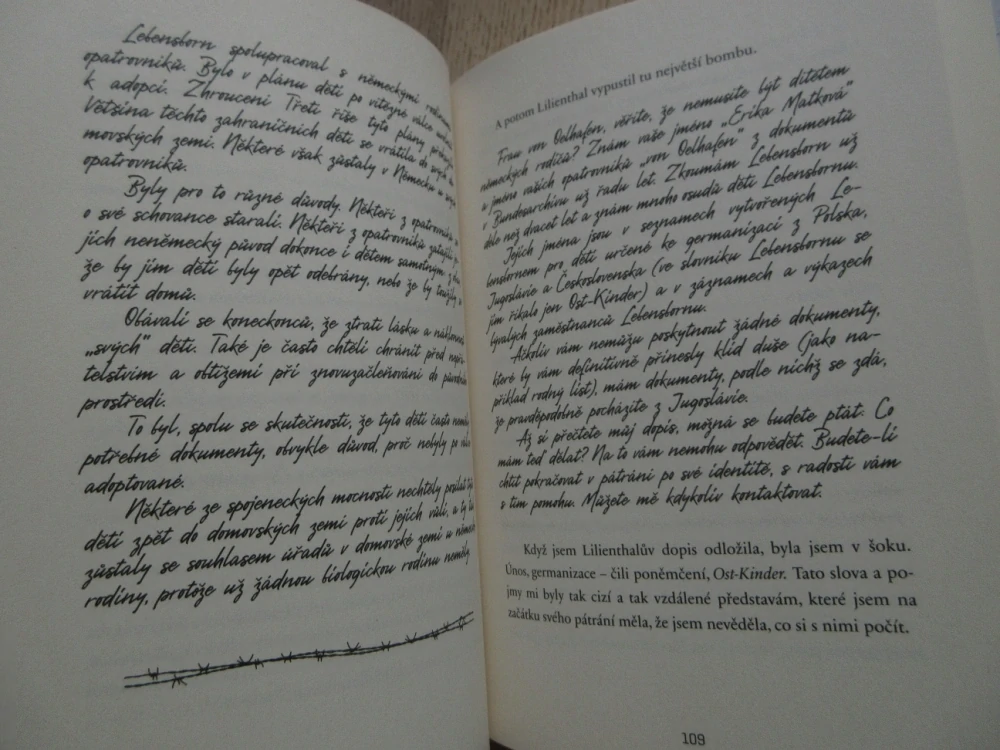 Lebensborn spolupracoval s německými
opatrovníků. Bylo v plánu děti po vítězné válce
k adopci. Zhroucení Třetí říše tyto plány
Většina těchto zahraničních dětí se vrátila do svých
movských zemí. Některé však zůstaly v Německu u svých
opatrovníků.
Byly pro to různé důvody. Někteří z opatrovníků
o své schovance starali. Někteří z opatrovníků zatajili
jich neněmecký původ dokonce i dětem samotným z
že by jim děti byly opět odebrány, nebo že by toužily
vrátit domů.
Obávali se koneckonců, že ztratí lásku a náklonnost
„svých“ dětí. Také je často chtěli chránit před nepřá-
telstvím a obtížemi při znovuzačleňování do původního
prostředí.
To byl, spolu se skutečností, že tyto děti často neměly
potřebné dokumenty, obvykle důvod, proč nebyly po válce
adoptované.
Některé ze spojeneckých mocností nechtěly posílat
děti zpět do domovských zemí proti jejich vůli, a ty
zůstaly se souhlasem úřadů v domovské zemi u německé
rodiny, protože už žádnou biologickou rodinu neměly.
A potom Lilienthal vypustil tu největší bombu.
Frau von Oelhafen, věříte, že nemusíte být dítětem
německých rodičů? Znám vaše jméno „Erika Matková“
a jméno vašich opatrovníků „von Oelhafen“ z dokumentů
v Bundesarchivu už řadu let. Zkoumám Lebensborn už
déle než dvacet let a znám mnoho osudů dětí Lebensbornu.
Jejich jména jsou v seznamech vytvořených Le-
bensbornem pro děti určené ke germanizaci z Polska,
Jugoslávie a Československa (ve slovníku Lebensbornu se
jim říkalo jen Ost-Kinder) a v záznamech a výkazech
bývalých zaměstnanců Lebensbornu.
Ačkoliv vám nemůžu poskytnout žádné dokumenty,
které by vám definitivně přinesly klid duše (jako na-
příklad rodný list), mám dokumenty, podle nichž se zdá,
že pravděpodobně pocházíte z Jugoslávie.
Až si přečtete můj dopis, možná se budete ptát. Co
mám teď dělat? Na to vám nemohu odpovědět. Budete-li
chtít pokračovat v pátrání po své identitě, s radostí vám
s tím pomohu. Můžete mě kdykoliv kontaktovat.
Když jsem Lilienthalův dopis odložila, byla jsem v šoku.
Únos, germanizace – čili poněmčení, Ost-Kinder. Tato slova a po-
jmy mi byly tak cizí a tak vzdálené představám, které jsem na
začátku svého pátrání měla, že jsem nevěděla, co si s nimi počít.
109